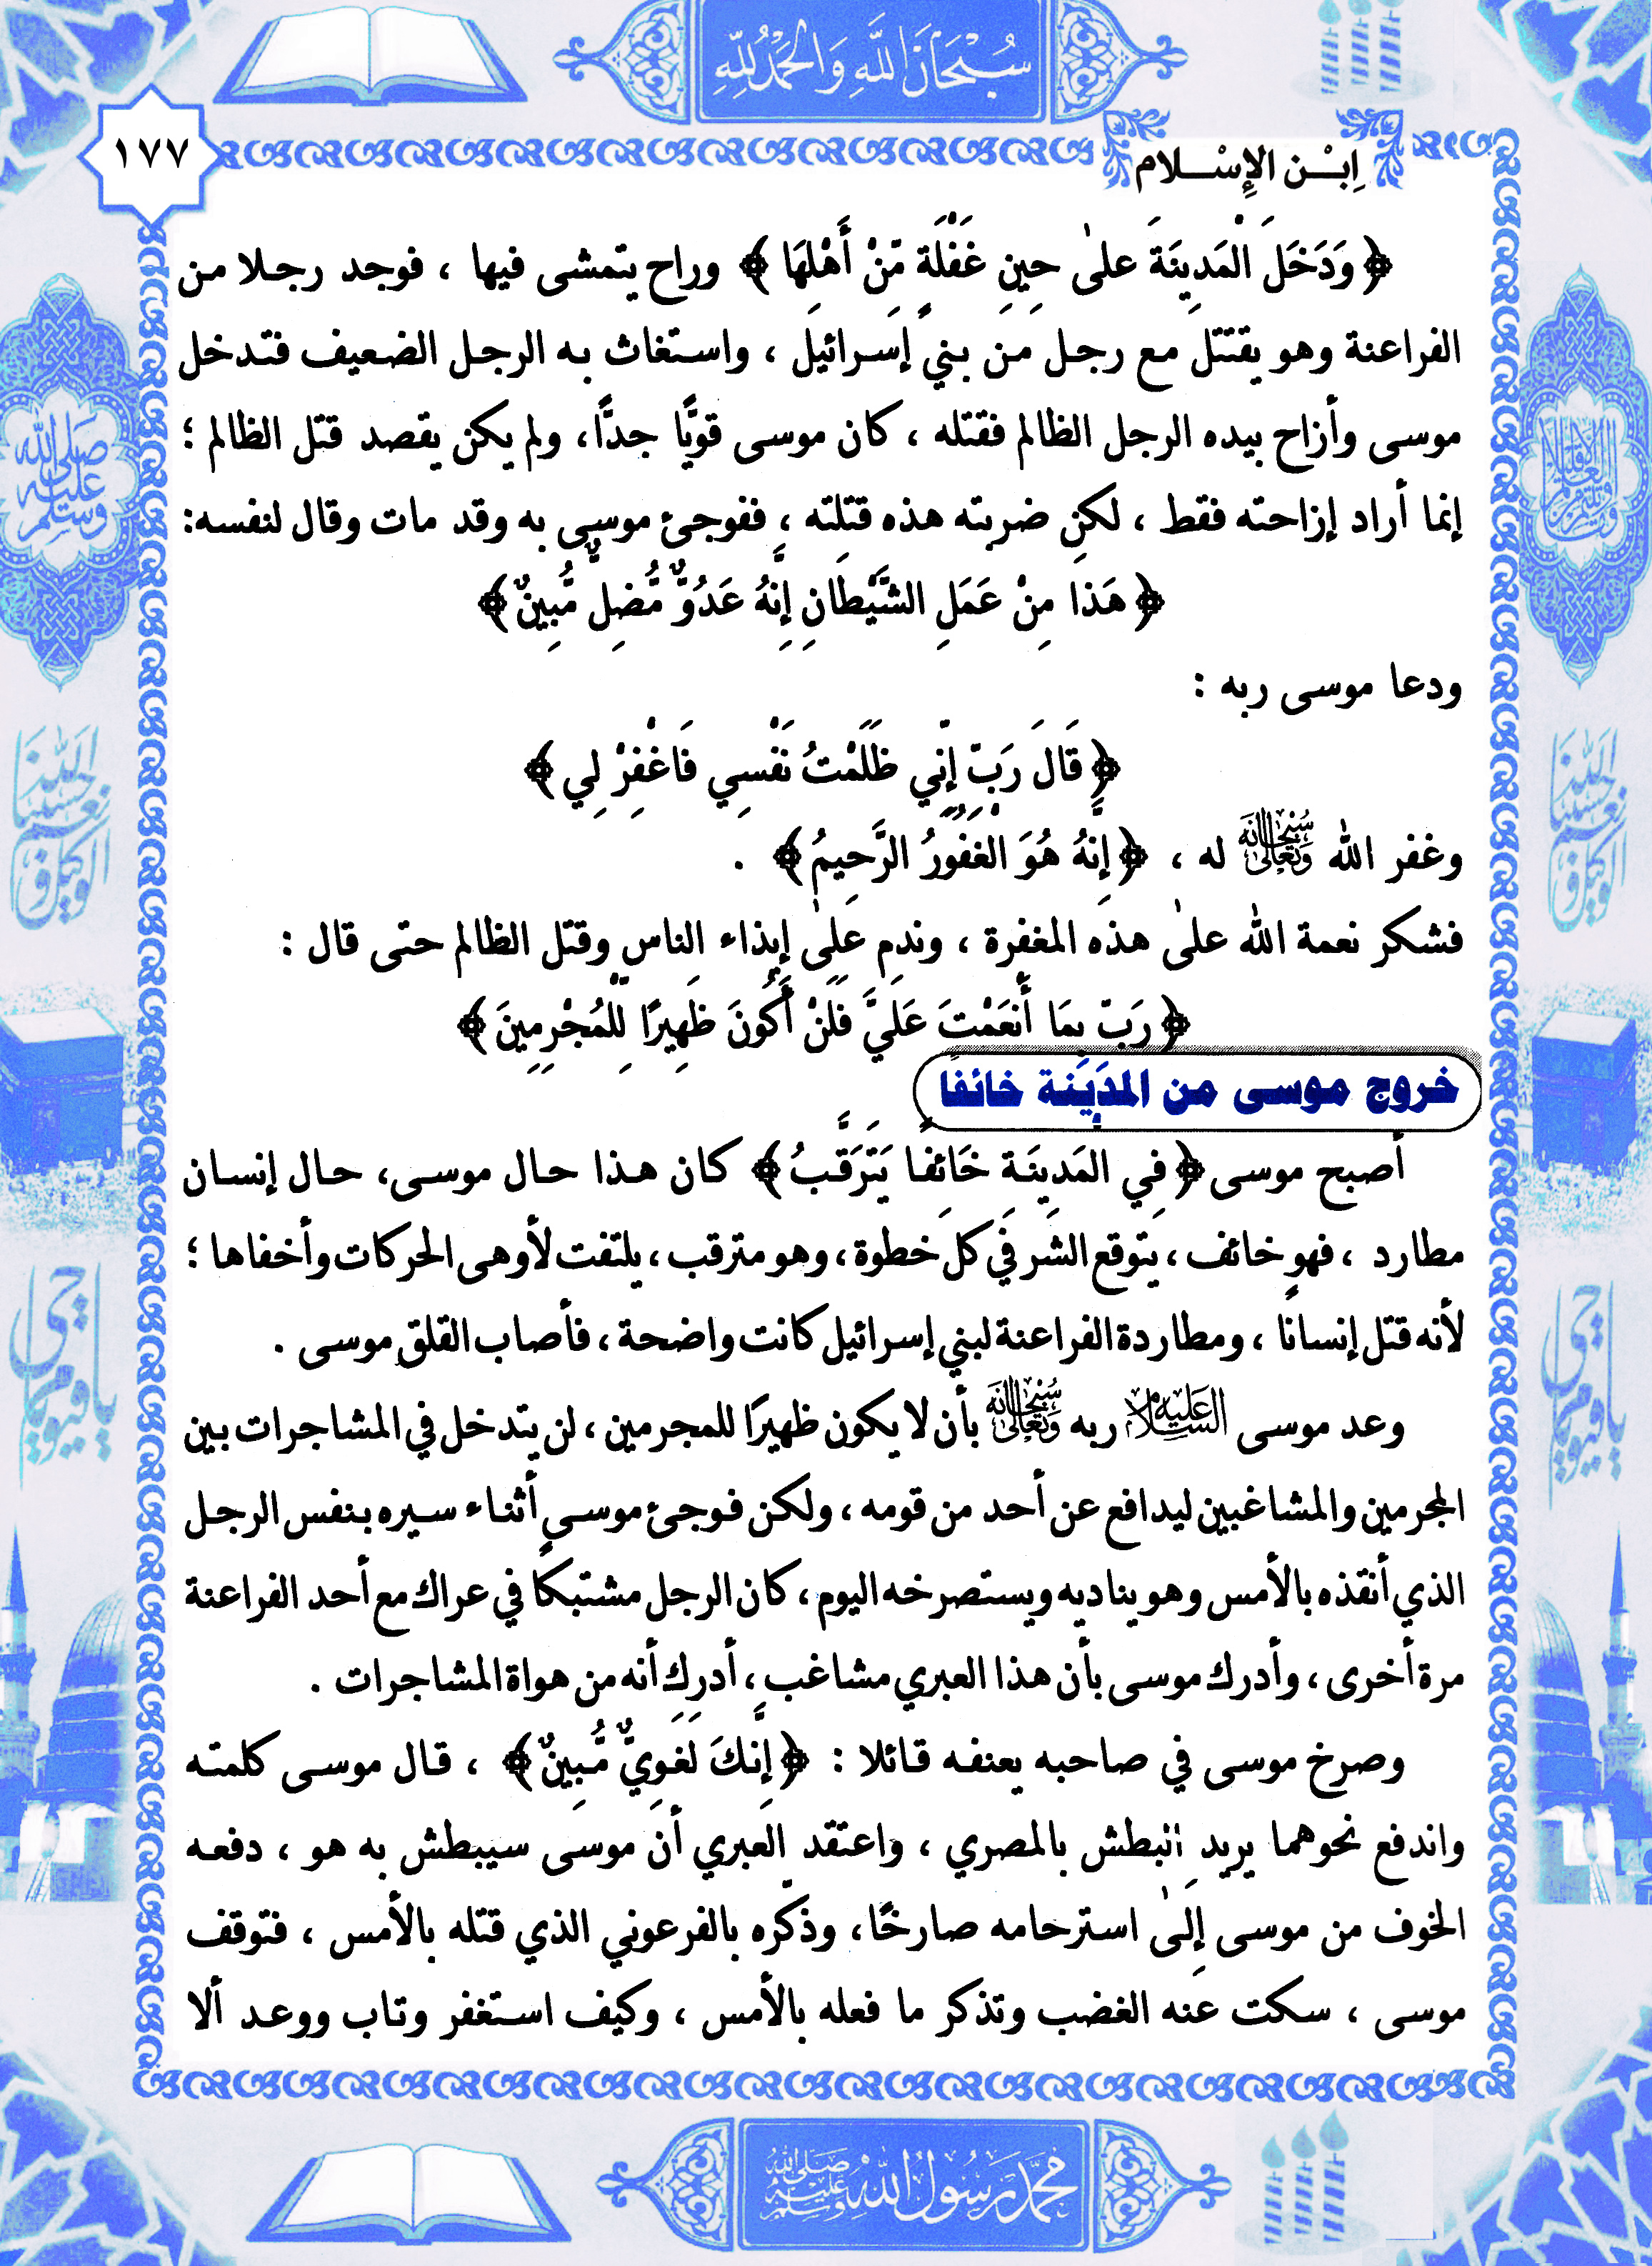 سُبْحَانَ اللَّهِ وَالْحَمْدُ لِلَّهِ
١٧٧
اِبْـن الإِسْـلام
﴿ وَدَخَلَ الْمَدِينَةَ علىٰ حِينِ غَفْلَةٍ مِّنْ أَهْلِهَا ﴾ وراح يتمشى فيها ، فوجد رجلا من
الفراعنة وهو يقتتل مع رجل من بني إسرائيل ، واستغاث به الرجل الضعيف فتدخل
موسى وأزاح بيده الرجل الظالم فقتله ، كان موسى قويًّا جدًّا، ولم يكن يقصد قتل الظالم ؛
إنما أراد إزاحته فقط ، لكن ضربته هذه قتلته ، ففوجئ موسى به وقد مات وقال لنفسه:
﴿ هَذا مِنْ عَمَلِ الشَّيْطَانِ إِنَّهُ عَدُوٌّ مُّضِلٌّ مُّبِينٌ ﴾
ودعا موسى ربه :
﴿ قَالَ رَبِّ إِنِّي ظَلَمْتُ نَفْسِي فَاغْفِرْ لِي ﴾
وغفر الله سُبْحَانَهُ وَتَعَالَىٰ له ، ﴿ إِنَّهُ هُوَ الْغَفُورُ الرَّحِيمُ ﴾ .
فشكر نعمة الله علىٰ هذه المغفرة ، وندم علىٰ إيذاء الناس وقتل الظالم حتى قال :
﴿ رَبِّ بِمَا أَنعَمْتَ عَلَيَّ فَلَنْ أَكُونَ ظَهِيرًا لِّلْمُجْرِمِينَ ﴾
خروج موسى من المَدِيَنة خائفًا
أصبح موسى ﴿ فِي المَدِينَةِ خَائِفًا يَتَرَقَّبُ ﴾ كان هذا حال موسى، حال إنسان
مطارد ، فهو خائف ، يتوقع الشر في كل خطوة ، وهو مترقب ، يلتفت لأوهى الحركات وأخفاها ؛
لأنه قتل إنسانًا ، ومطاردة الفراعنة لبني إسرائيل كانت واضحة ، فأصاب القلق موسى .
وعد موسى عَلَيْهِ السَّلَام ربه سُبْحَانَهُ وَتَعَالَىٰ بأن لا يكون ظهيرًا للمجرمين ، لن يتدخل في المشاجرات بين
المجرمين والمشاغبين ليدافع عن أحد من قومه ، ولكن فوجئ موسى أثناء سيره بنفس الرجل
الذي أنقذه بالأمس وهو يناديه ويستصرخه اليوم ، كان الرجل مشتبكًا في عراك مع أحد الفراعنة
مرة أخرى ، وأدرك موسى بأن هذا العبري مشاغب ، أدرك أنه من هواة المشاجرات .
وصرخ موسى في صاحبه يعنفه قائلا : ﴿ إِنَّكَ لَغَوِيٌّ مُّبِينٌ ﴾ ، قال موسى كلمته
واندفع نحوهما يريد البطش بالمصري ، واعتقد العبري أن موسى سيبطش به هو ، دفعه
الخوف من موسى إلىٰ استرحامه صارخًا، وذكّره بالفرعوني الذي قتله بالأمس ، فتوقف
موسى ، سكت عنه الغضب وتذكر ما فعله بالأمس ، وكيف استغفر وتاب ووعد ألا
محمد رسول الله صلى الله عليه وسلم
صلى الله عليه وسلم
حسبنا الله ونعم الوكيل
حسبنا الله ونعم الوكيل
يا حي يا قيوم
يا حي يا قيوم